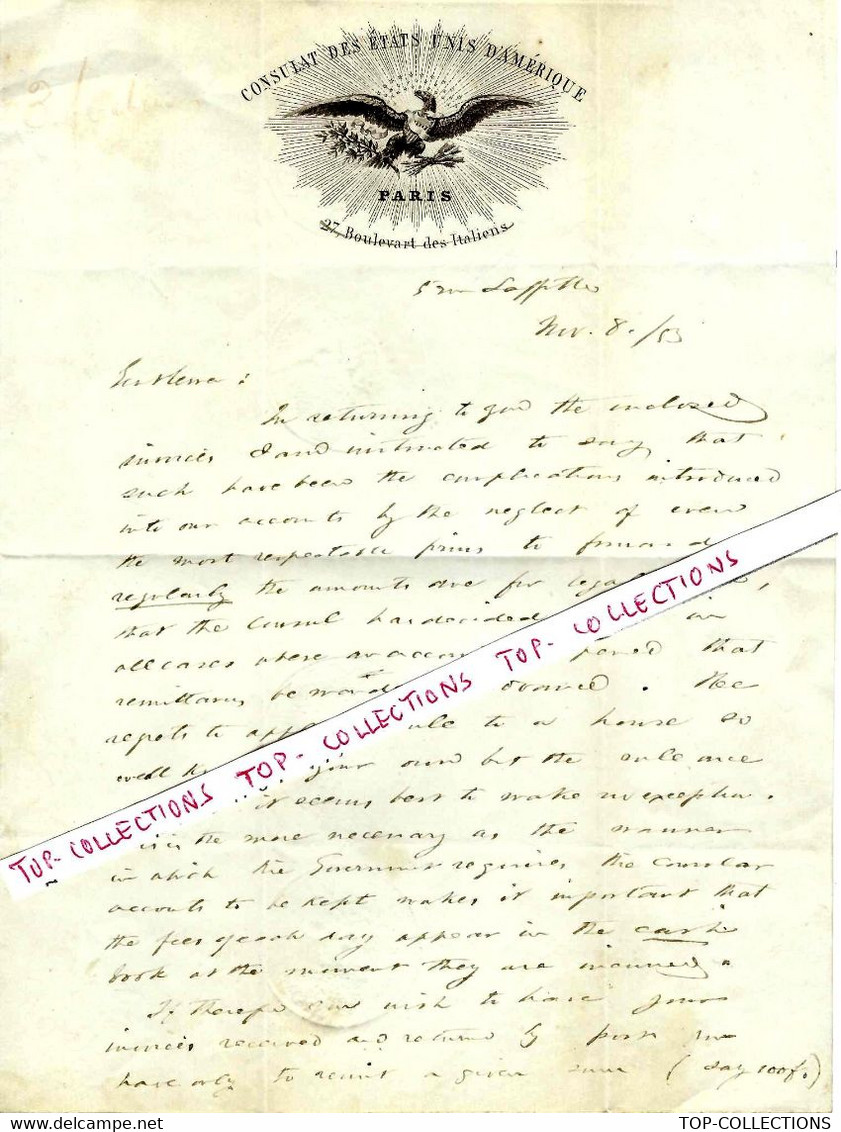 CONSULAT DES ÉTATS UNIS D'AMÉRIQUE
PARIS
27, Boulevart des Italiens
5 rue Laffitte
Nov. 8. /53
Gentlemen :
In returning to you the inclosed
invoices I am instructed to say that
such have been the complications introduced
into our accounts by the neglect of even
the most respectable firms to forward
regularly the amounts due for
that the Consul has decided in
all cases where an that
remittances be made. He
regrets to rule to a house so
well your own but the rule once
it seems best to make no exception.
is the more necessary as the manner
in which the Government requires the Consular
accounts to be kept makes it important that
the fees of each day appear in the cash
book at the moment they are incurred.
If therefore you wish to have your
invoices received and returned by post you
have only to remit a given sum (say 100f.)
TOP- COLLECTIONS TOP- COLLECTIONS TOP- COLLECTIONS
TOP-COLLECTIONS